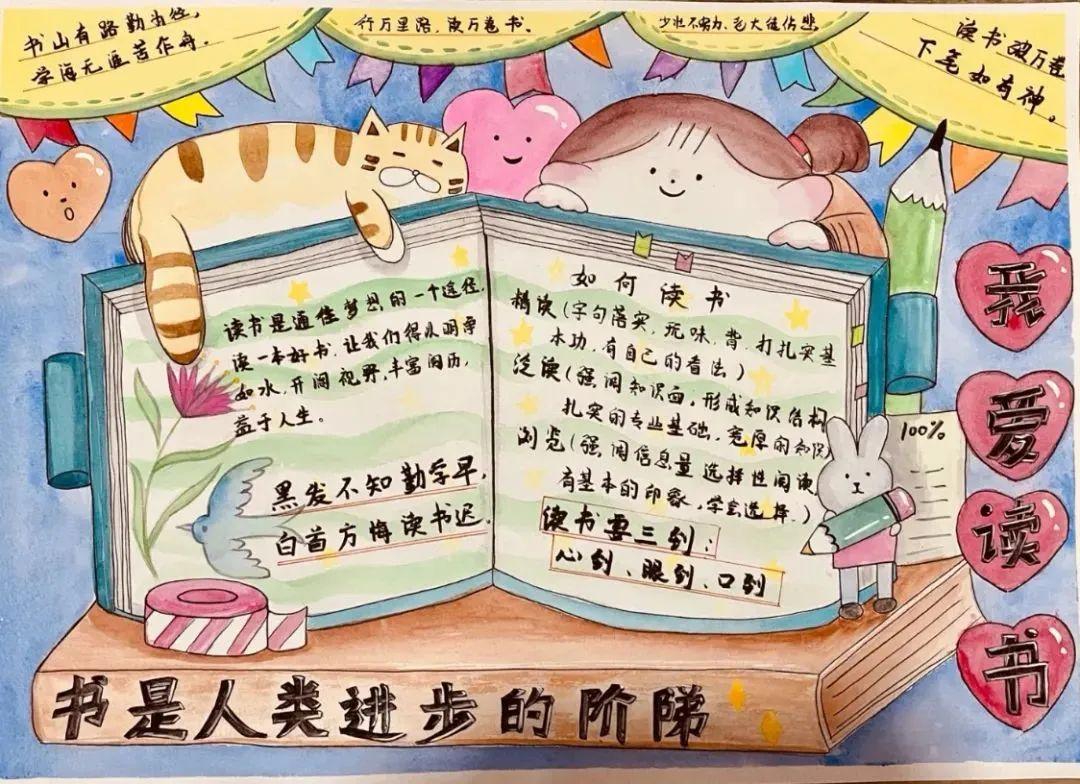 书山有路勤为径,
学海无涯苦作舟。
行万里路,读万卷书。
少壮不努力,老大徒伤悲
读书破万卷
下笔如有神。
读书是通往梦想的一个途径,
读一本好书,让我们得以明净
如水,开阔视野,丰富阅历,
益于人生。
黑发不知勤学早,
白首方悔读书迟。
如何读书
精读(字句落实,玩味,背,打扎实基
本功,有自己的看法)
泛读(强调知识面,形成知识结构
扎实的专业基础,宽厚的知识)
浏览(强调信息量 选择性阅读,
有基本的印象,学会选择.)
读书要三到:
心到、眼到、口到
100%
我
爱
读
书
书是人类进步的阶梯